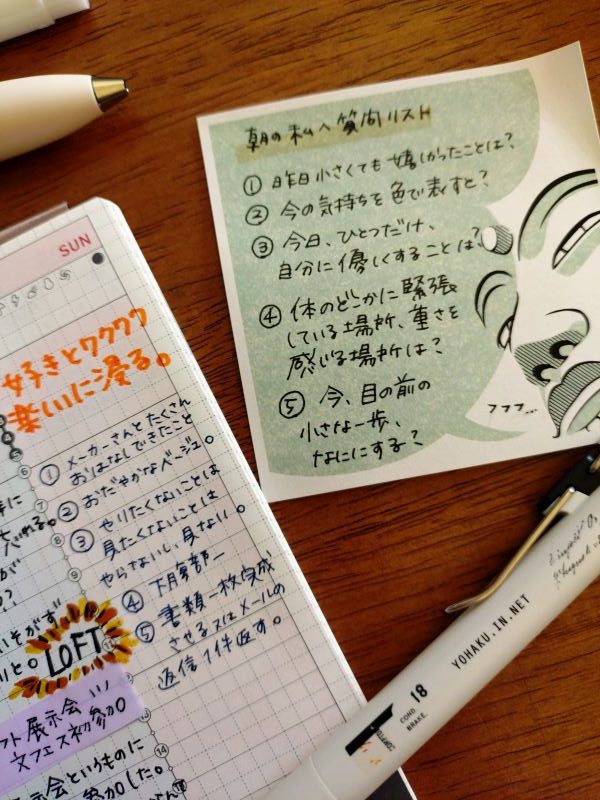 朝の私へ質問リスト
① 昨日小さくても嬉しかったことは?
② 今の気持ちを色で表すと?
③ 今日、ひとつだけ、
自分に優しくすることは?
④ 体のどこかに緊張
している場所、重さを
感じる場所は?
⑤ 今、目の前の
小さな一歩、
なににする?
フフフ...
SUN
好きとワクワク
楽しいに浸る。
① メーカーさんとたくさん
おはなしできたこと
② おだやかなベージュ。
③ やりたくないことは
見たくないことは
やらないし、見ない。
④ 下腹部ー
⑤ 書類一枚完成
させる又はメールの
返信1件返す。
LOFT
フト展示会 いい
文フェス初参加
展示会というものに
参加した。
14
YOHAKU.IN.NET
COND. 18
BRAKE.